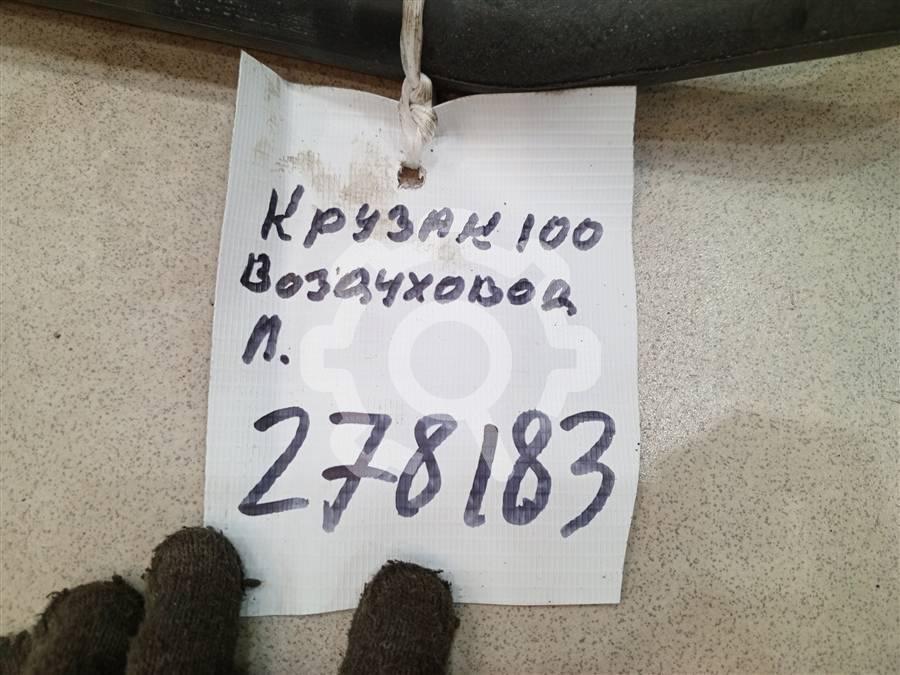 Крузак 100
Воздуховод
Л.
278183